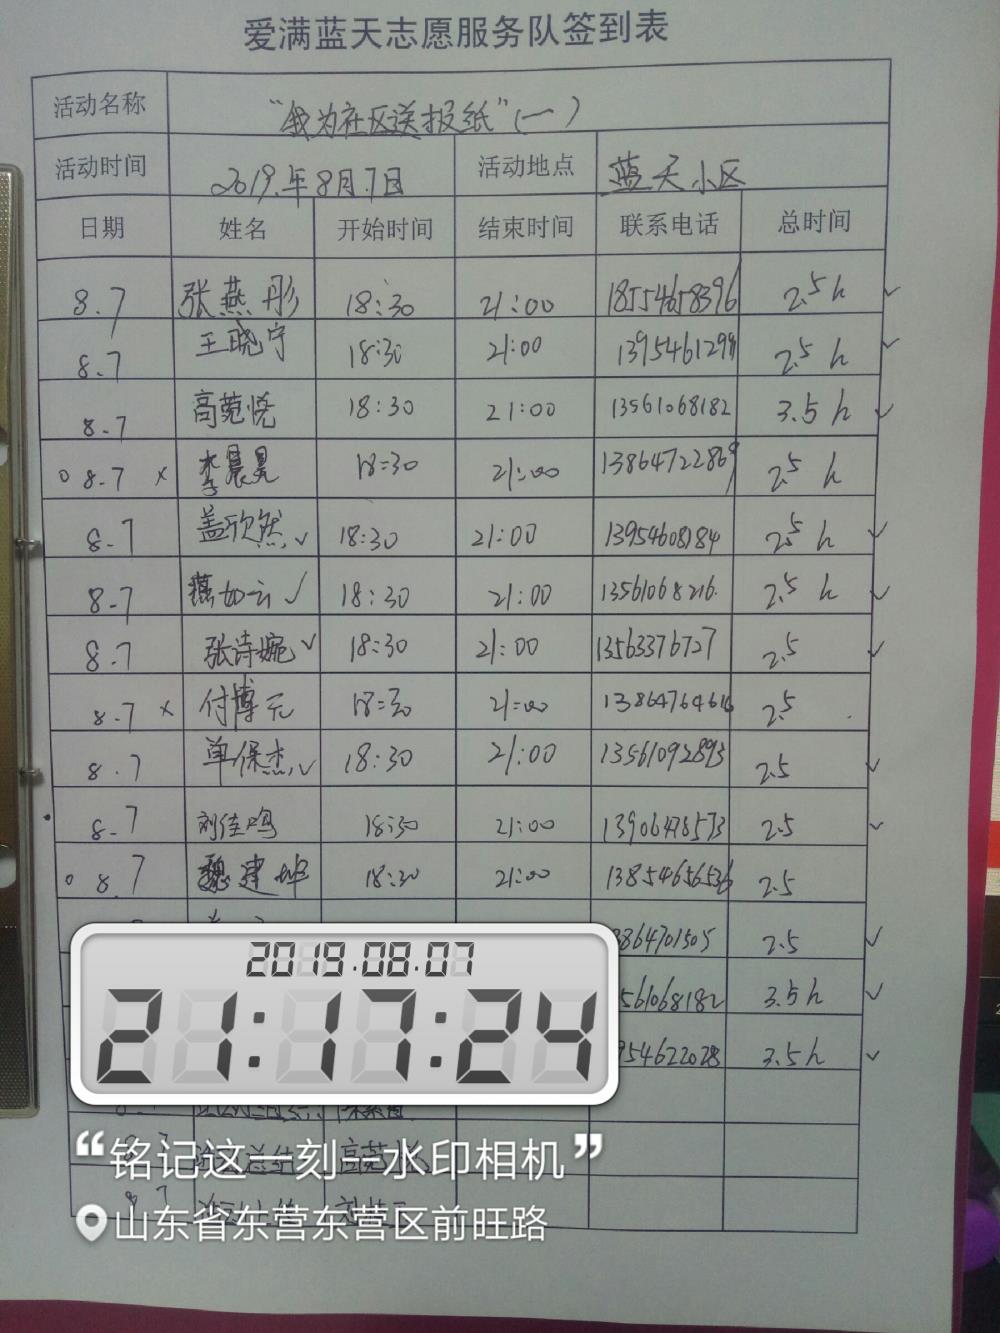 爱满蓝天志愿服务队签到表
活动名称 "我为社区送报纸"(一)
活动时间 2019.年8月.7日 活动地点 蓝天小区
日期 姓名 开始时间 结束时间 联系电话 总时间
8.7 张燕彤 18:30 21:00 18554658396 2.5h ✓
8.7 王晓宁 18:30 21:00 2.5h ✓
8.7 高菀悦 18:30 21:00 13561068182 3.5h ✓
8.7 × 李晨昊 18:30 21:00 13864722869 2.5h
8.7 盖欣然 ✓ 18:30 21:00 13954608184 2.5h ✓
8.7 燕如云 ✓ 18:30 21:00 13561068216. 2.5h ✓
8.7 张诗婉 ✓ 18:30 21:00 13563376727 2.5 ✓
8.7 × 付博元 18:30 21:00 2.5
8.7 单保杰 ✓ 18:30 21:00 13561092893 2.5 ✓
8.7 刘佳鸣 18:30 21:00 13906478573 2.5 ✓
8.7 魏建坤 18:30 21:00 13854656536 2.5
3864701505 2.5 ✓
561068182 3.5h ✓
954622028 3.5h ✓
2019.08.07
21:17:24
"铭记这一刻—水印相机"
山东省东营东营区前旺路